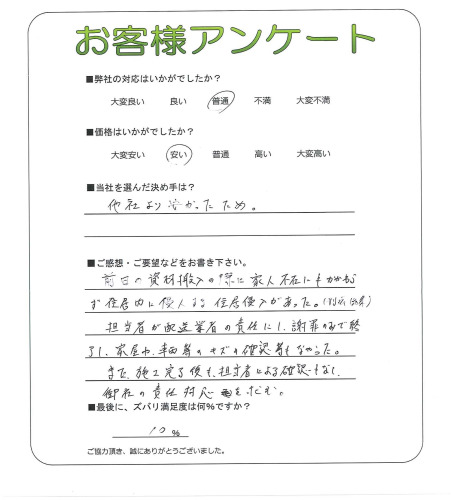 お客様アンケート
■弊社の対応はいかがでしたか?
大変良い 良い 普通 不満 大変不満
■価格はいかがでしたか?
大変安い 安い 普通 高い 大変高い
■当社を選んだ決め手は?
他社より安かったため。
■ご感想・ご要望などをお書き下さい。
前日の資材搬入の際に家人不在にもかかわら
ず住居内に侵入する住居侵入があった。
担当者が配送業者の責任にし、謝罪のみで終
了し、家屋や、車両等のキズの確認等もなかった。
また、施工完了後も、担当者による確認もなし。
御社の責任対応を求む。
■最後に、ズバリ満足度は何%ですか?
10 %
ご協力頂き、誠にありがとうございました。